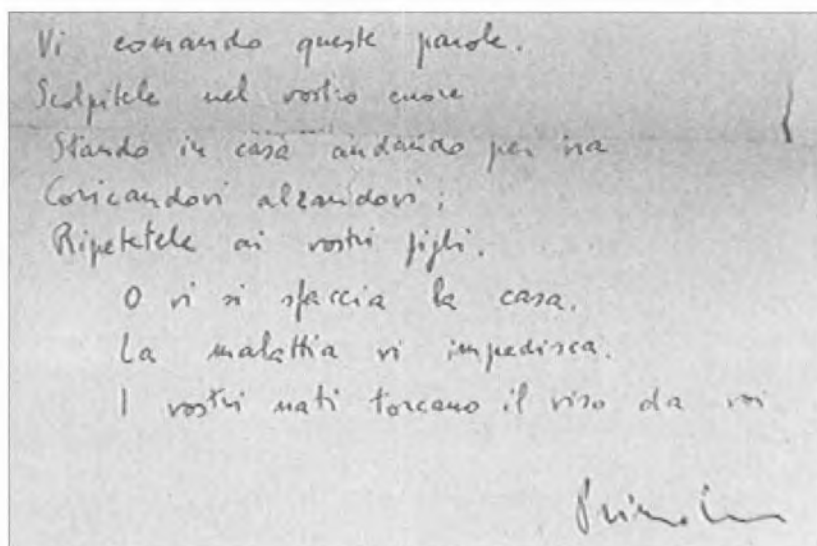 Vi comando queste parole.
Scolpitele nel vostro cuore
Stando in casa andando per via
Coricandovi alzandovi;
Ripetetele ai vostri figli.
O vi si sfaccia la casa.
La malattia vi impedisca.
I vostri nati torcano il viso da voi